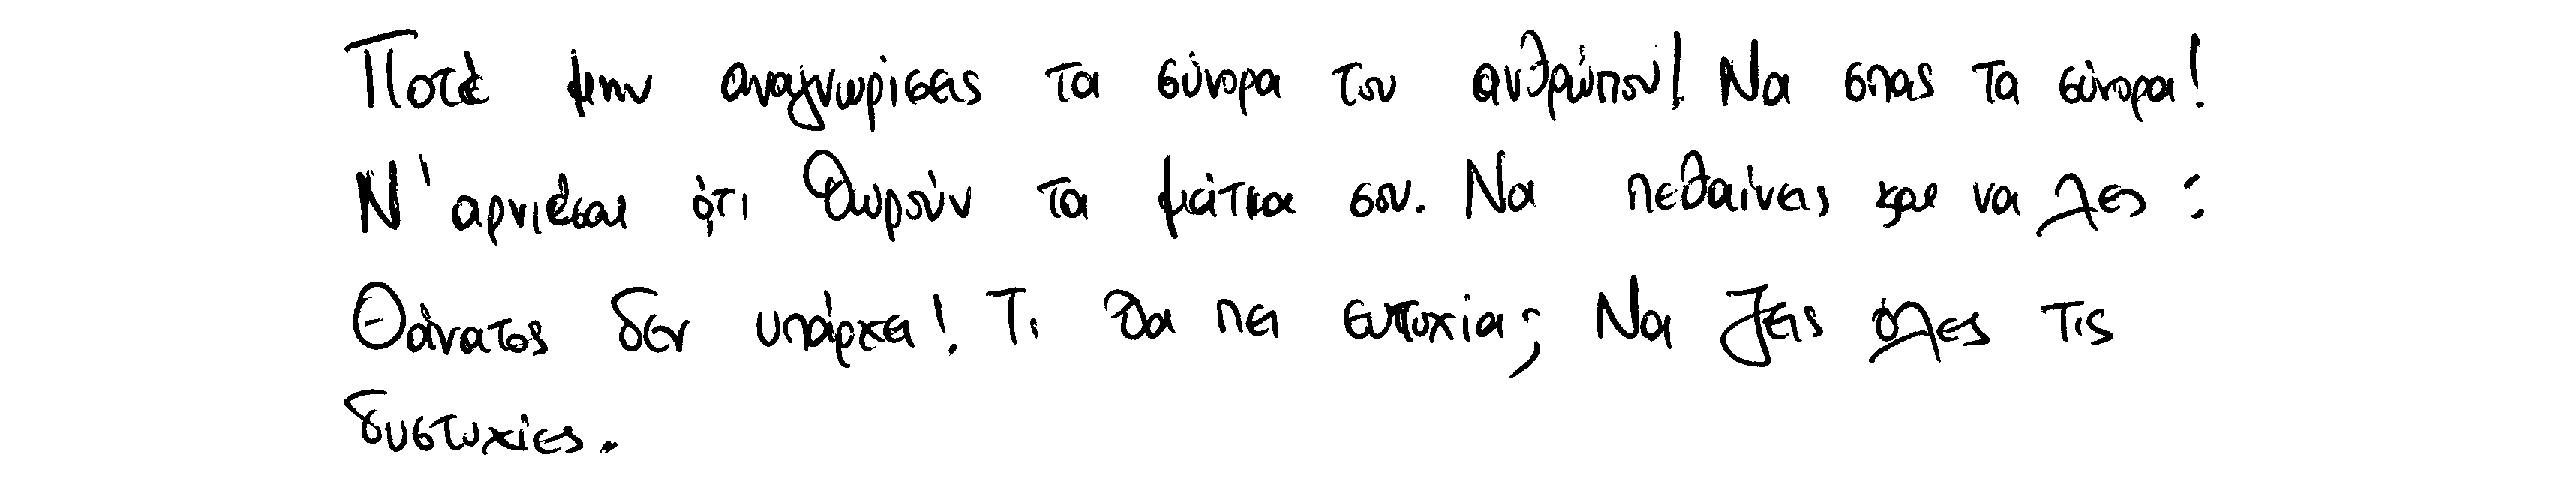 Ποτέ μην αναγνωρίσεις τα σύνορα του ανθρώπου! Να σπας τα σύνορα!
Ν' αρνιέσαι ότι θωρούν τα μάτια σου. Να πεθαίνεις και να λες:
Θάνατος δεν υπάρχει! Τι θα πει ευτυχία; Να ζεις όλες τις
δυστυχίες.